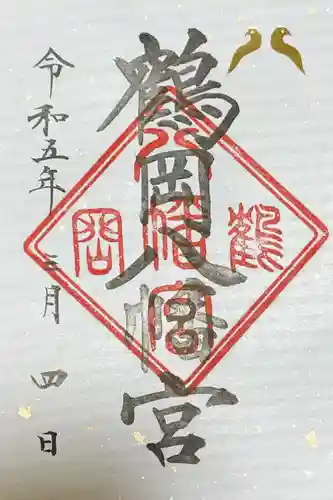 鶴岡八幡宮
令和五年三月四日
鶴岡八幡宮